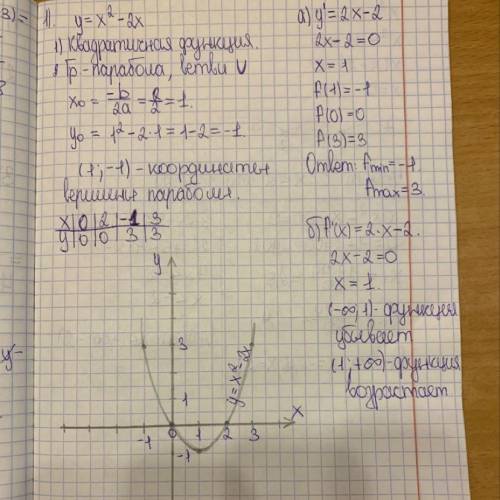 3)=
1). y = x² - 2x
1) Квадратичная функция.
Гр - парабола, ветви ∪
x₀ = -b/2a = 2/2 = 1.
y₀ = 1² - 2·1 = 1 - 2 = -1.
(1; -1) - координаты
вершины параболы.
x | 0 | 2 | -1 | 3
y | 0 | 0 | 3 | 3
y
3
1
y = x² - 2x
x
-1 0 1 2 3
-1
y' -
а) y' = 2x - 2
2x - 2 = 0
x = 1
f(1) = -1
f(0) = 0
f(3) = 3
Ответ: fmin = -1
fmax = 3
б) f'(x) = 2·x - 2.
2x - 2 = 0
x = 1.
(-∞; 1) - функция
убывает
(1; +∞) - функция
возрастает